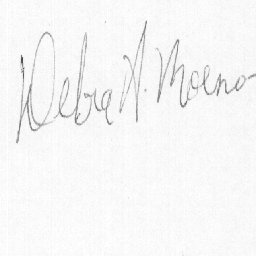 Debra A. Moeno